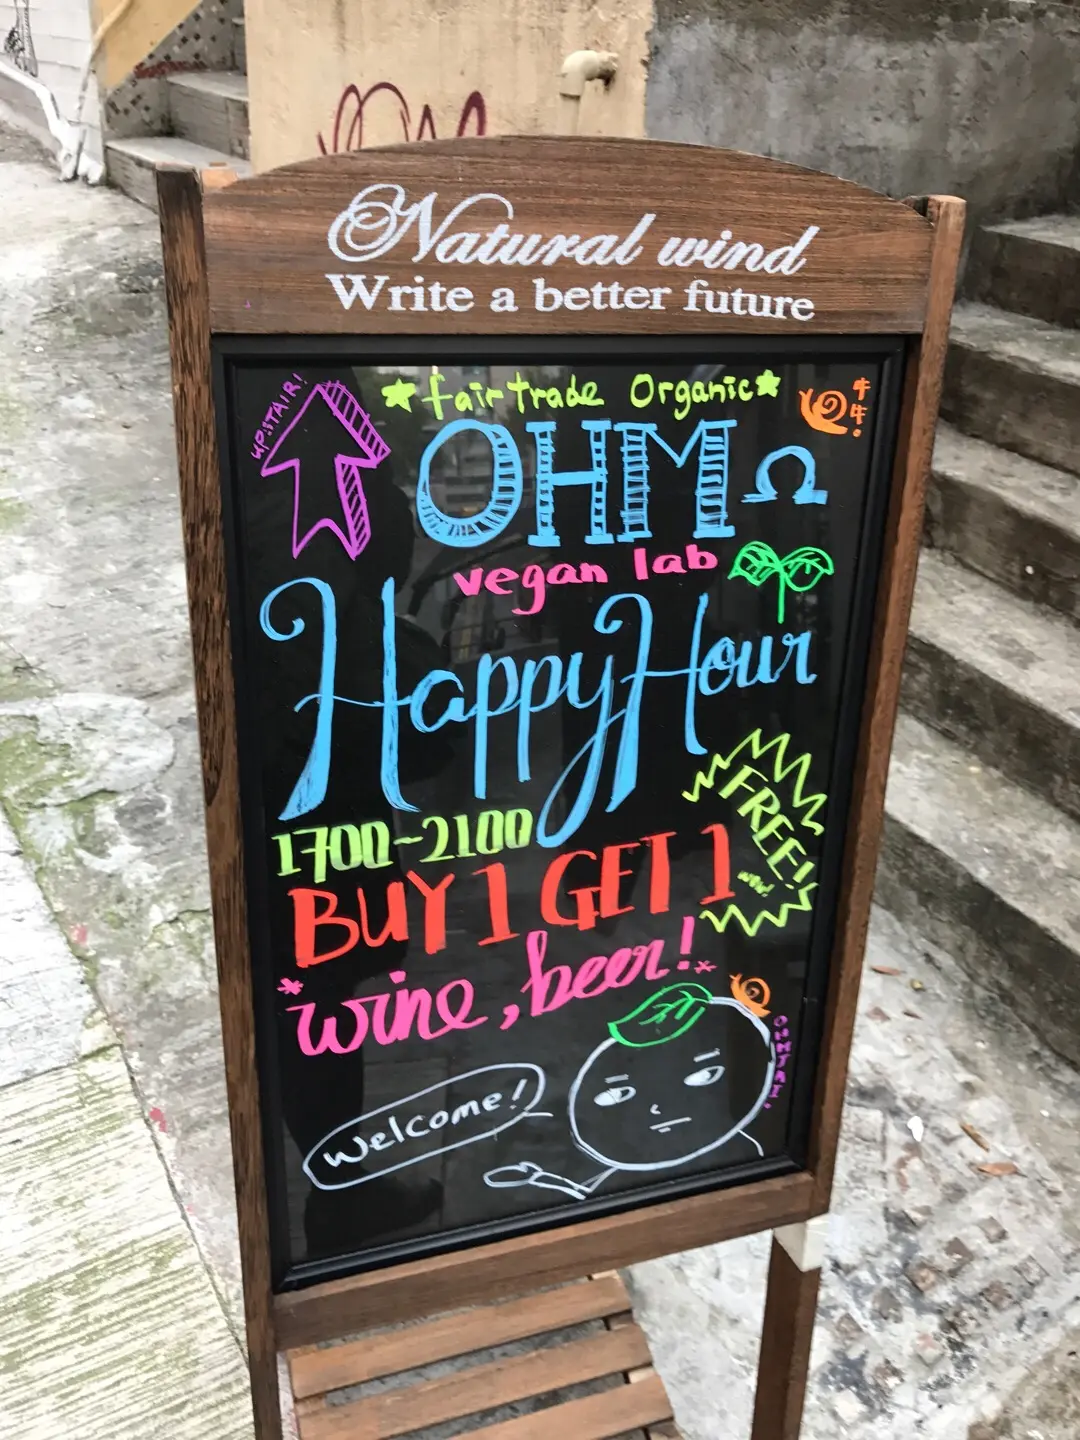 Natural wind
Write a better future
UPSTAIR!
★fairtrade Organic★
牛牛!
OHM Ω
vegan lab
Happy Hour
1700~2100
FREE!
BUY 1 GET 1
*wine, beer!*
Welcome!
OHMJAI.